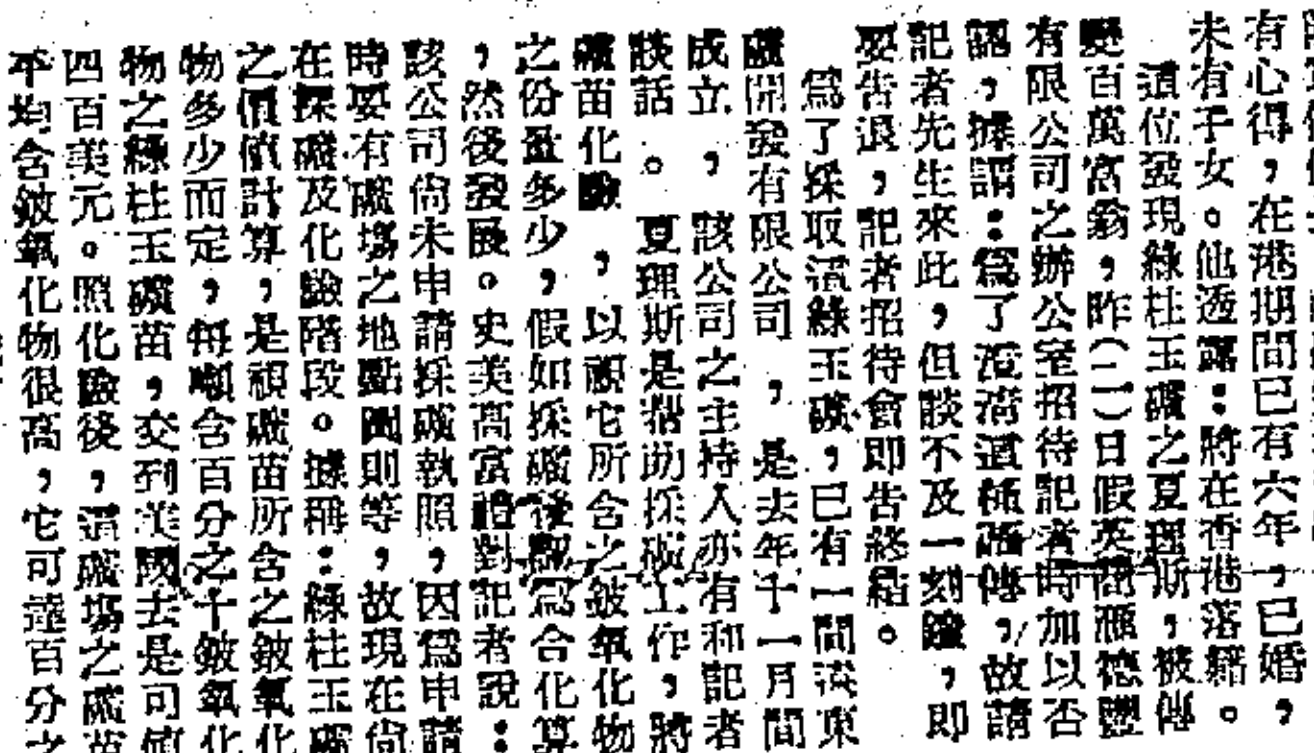 有心得，在港期間已有六年，已婚，
未有子女。他透露：將在香港落籍。
這位發現綠柱玉礦之夏理斯，被傳
變百萬富翁，昨（二）日假英商 德豐
有限公司之辦公室招待記者時加以否
認，據謂：爲了澄清這種謠傳，故請
記者先生來此，但談不及一刻鐘，即
要告退，記者招待會即告終結。
爲了採取 綠玉礦，已有一間 東
礦開發有限公司，是去年十一月間
成立，該公司之主持人亦有和記者
談話。夏理斯是幫助採礦工作，將
礦苗化驗，以視它所含之鈹氧化物
之份量多少，假如採礦後認爲合化算
，然後發展。史美高富禮對記者說：
該公司尙未申請採礦執照，因爲申請
時要有礦塲之地點圖則等，故現在尙
在採礦及化驗階段。據稱：綠柱玉礦
之價値計算，是視礦苗所含之鈹氧化
物多少而定，每噸含百分之十鈹氧化
物之綠柱玉礦苗，交到美國去是可値
四百美元。照化驗後，這礦塲之礦苗
平均含鈹氧化物很高，它可達百分之